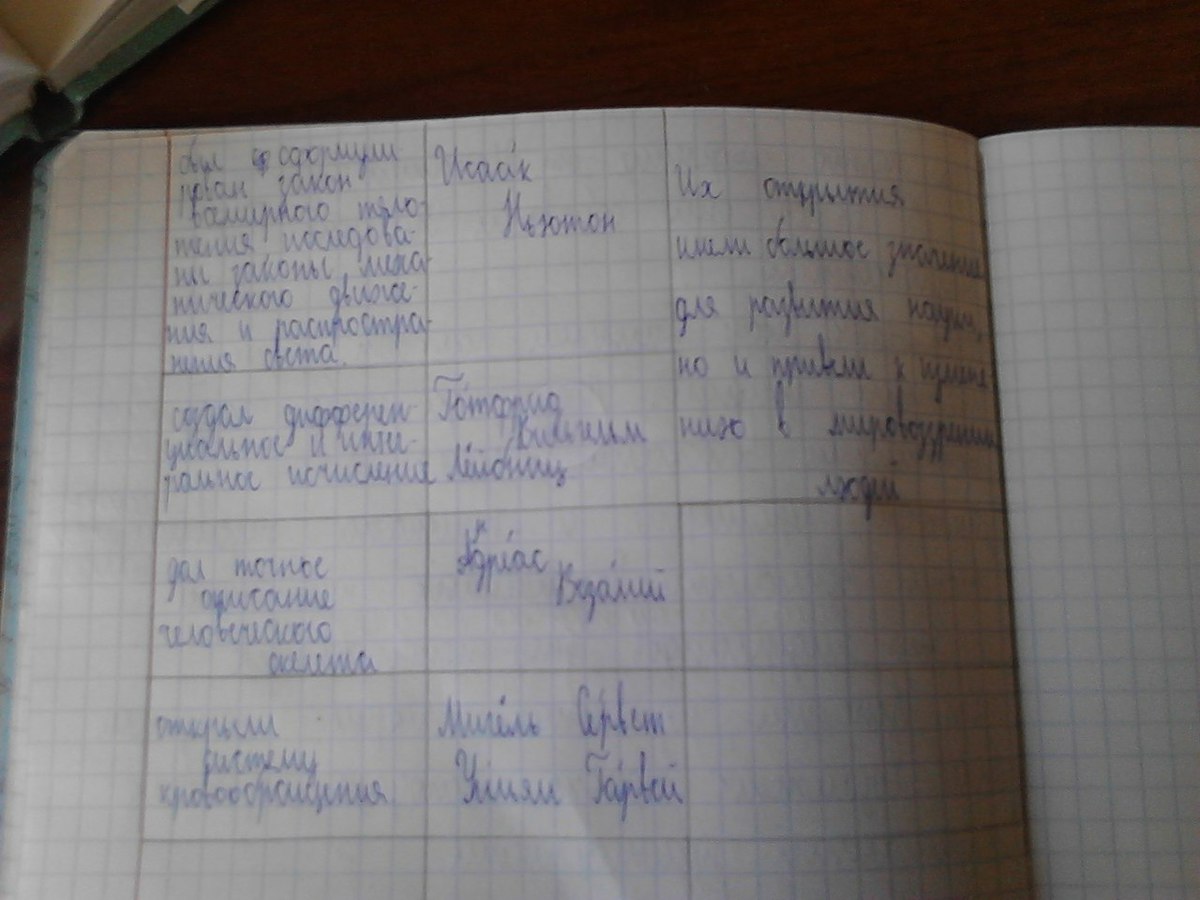 был сформули
рован закон
всемирного тяго-
тения исследова-
ны законы меха-
нического движе-
ния и распростра-
нения света.
Исаа́к
Ньютон
Их открытия
имели большое значение
для развития науки,
но и привели к измене
нию в мировоззрении
людей
создал дифферен-
циальное и инте-
гральное исчисление
Го́тфрид
Вильгельм
Ле́йбниц
дал точное
описание
человеческого
скелета
Везалий
открыли
систему
кровообращения
Миге́ль Се́рвет
Уи́льям Га́рвей